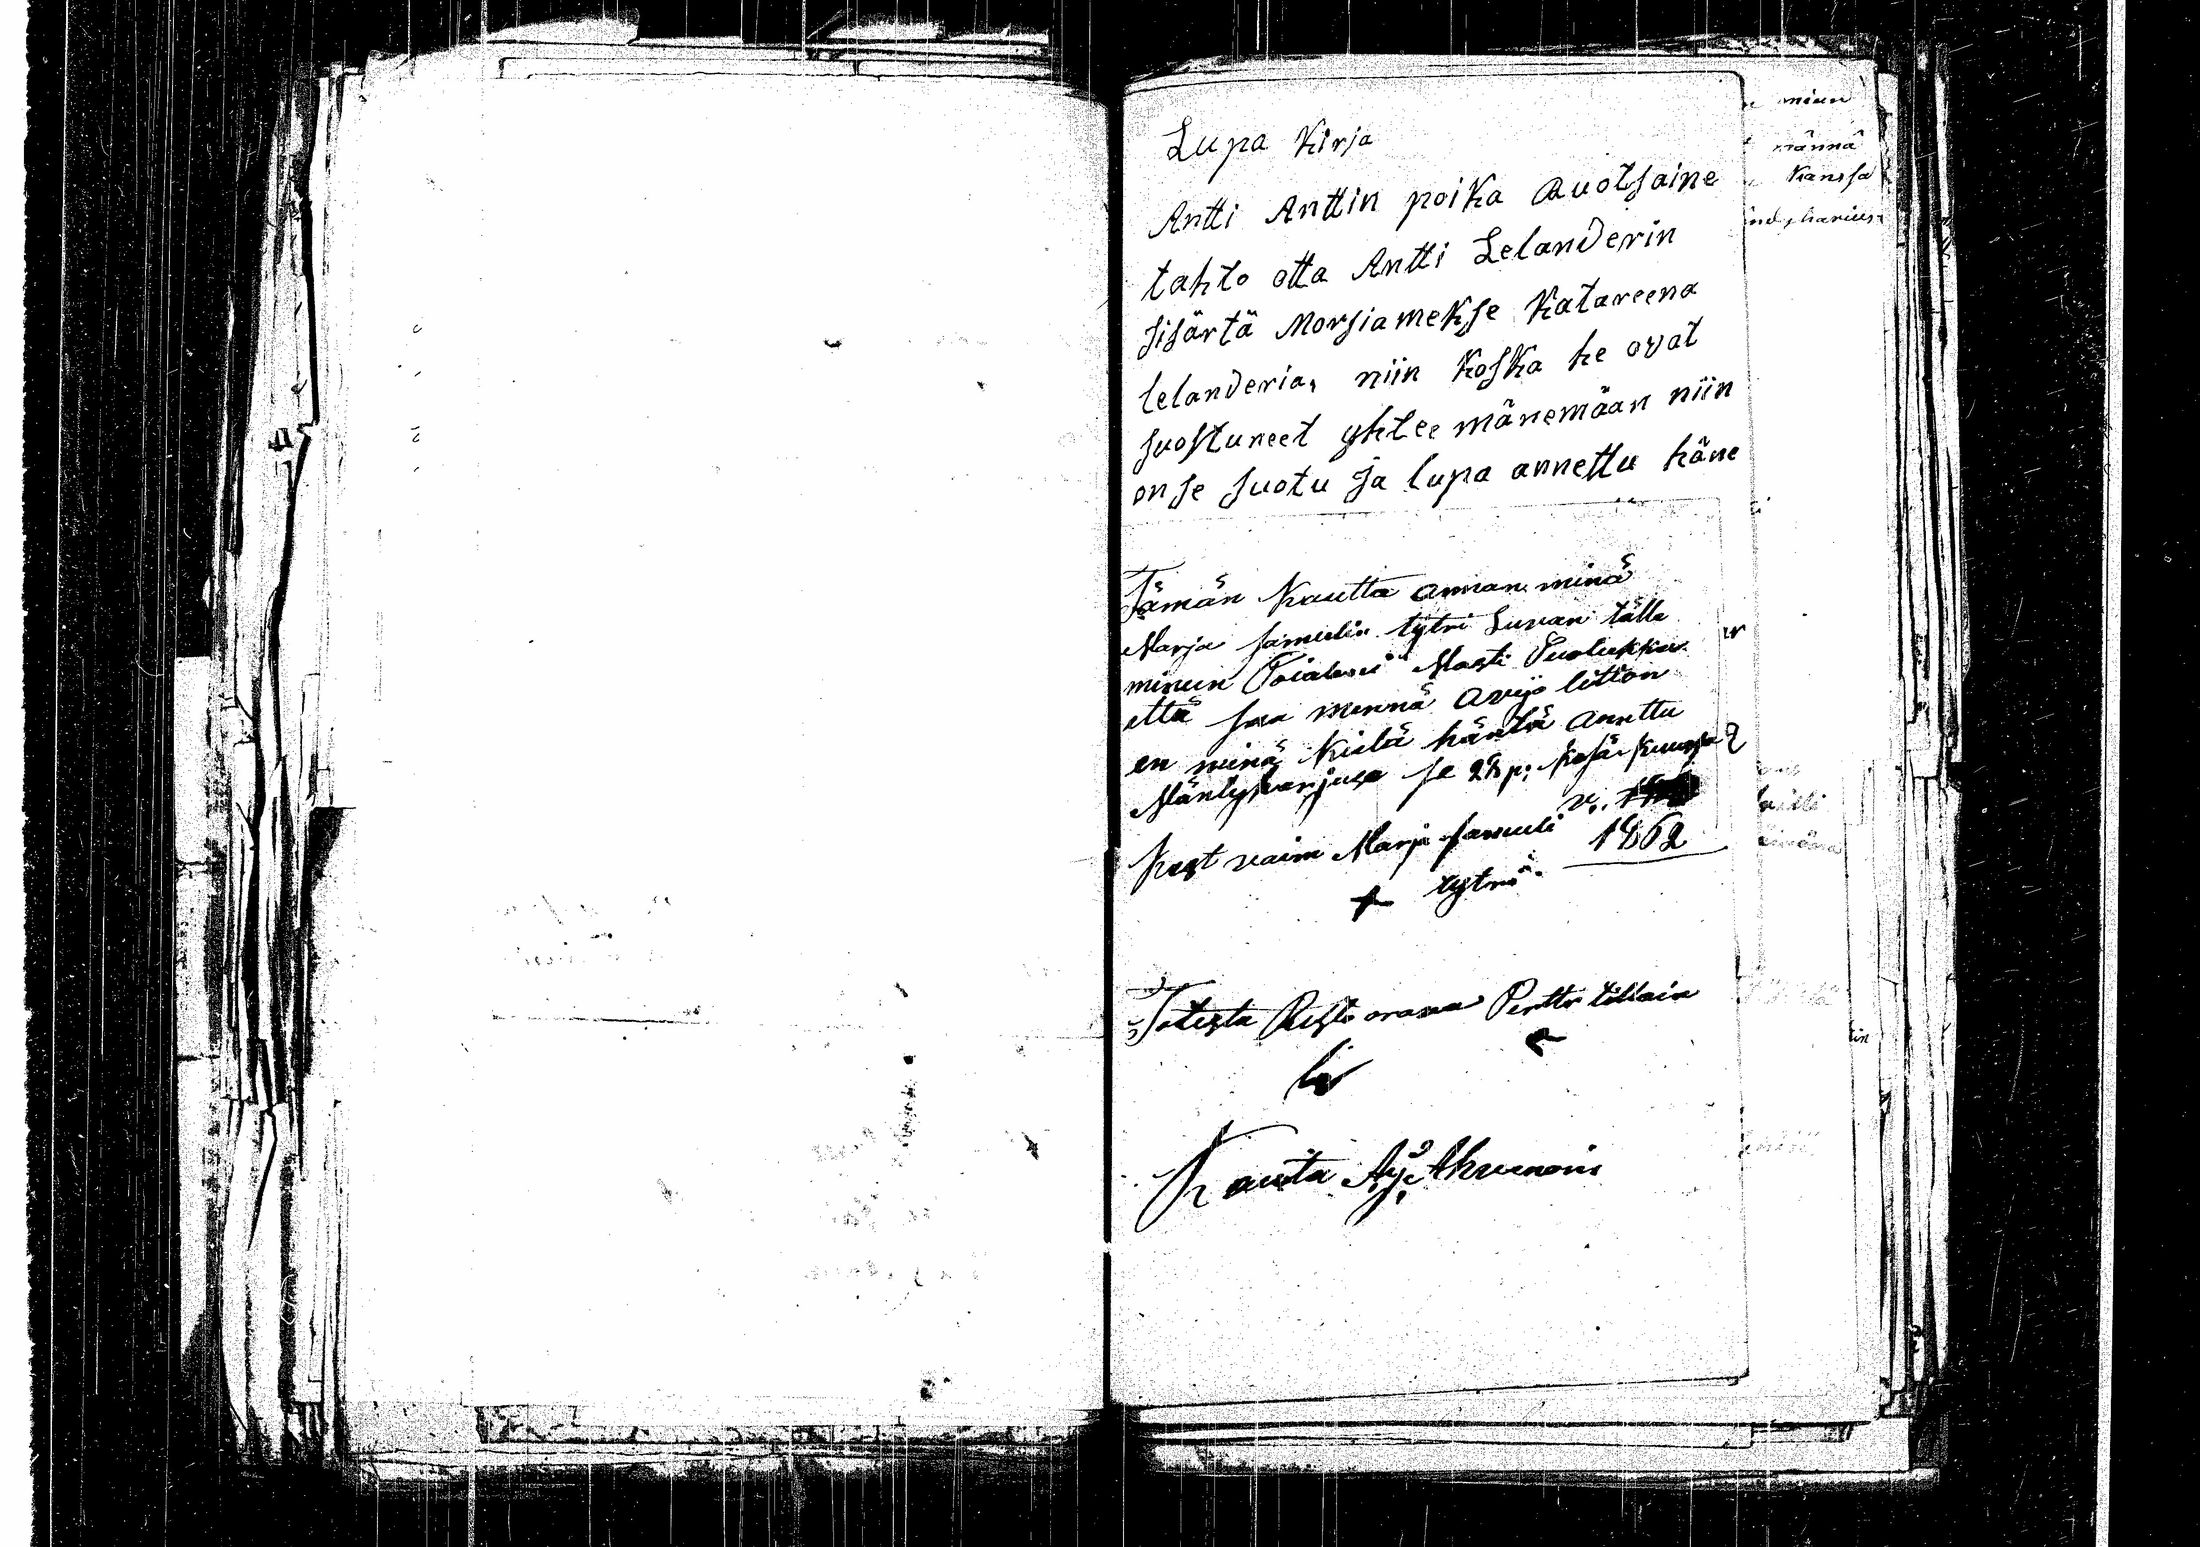 Lupa Kirja
Antti Anttin poika Ruotsaine
tahto otta Antti Lelanderin
sisärtä Morsiamekse Katareena
lelanderia, niin Koska he ovat
suostuneet yhtee mänemään niin
on se suotu ja lupa annettu häne
Tämän Kautta annan minä
Marja samulin tytri Luvan tälle
minun Poialleni Matti Puolukka
että saa mennä avijo littoon
en minä Kielä häntä annttu
Mäntyharjusa se 28 p: Kesä Kuussa
v.
Kest vaim Marja samuli 1862
+ tytri
Totista Pertto
Kautta
miun
männä
Kanssa